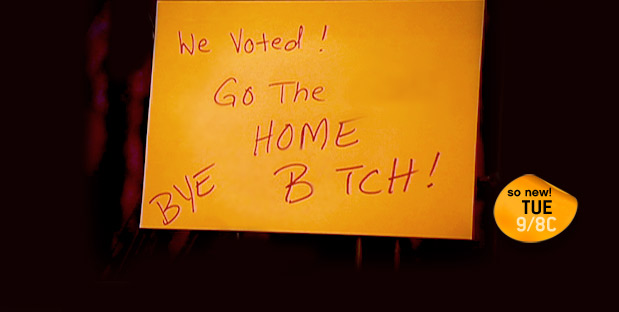 We Voted!
Go The
HOME
BYE B TCH!
so new!
TUE
9/8C